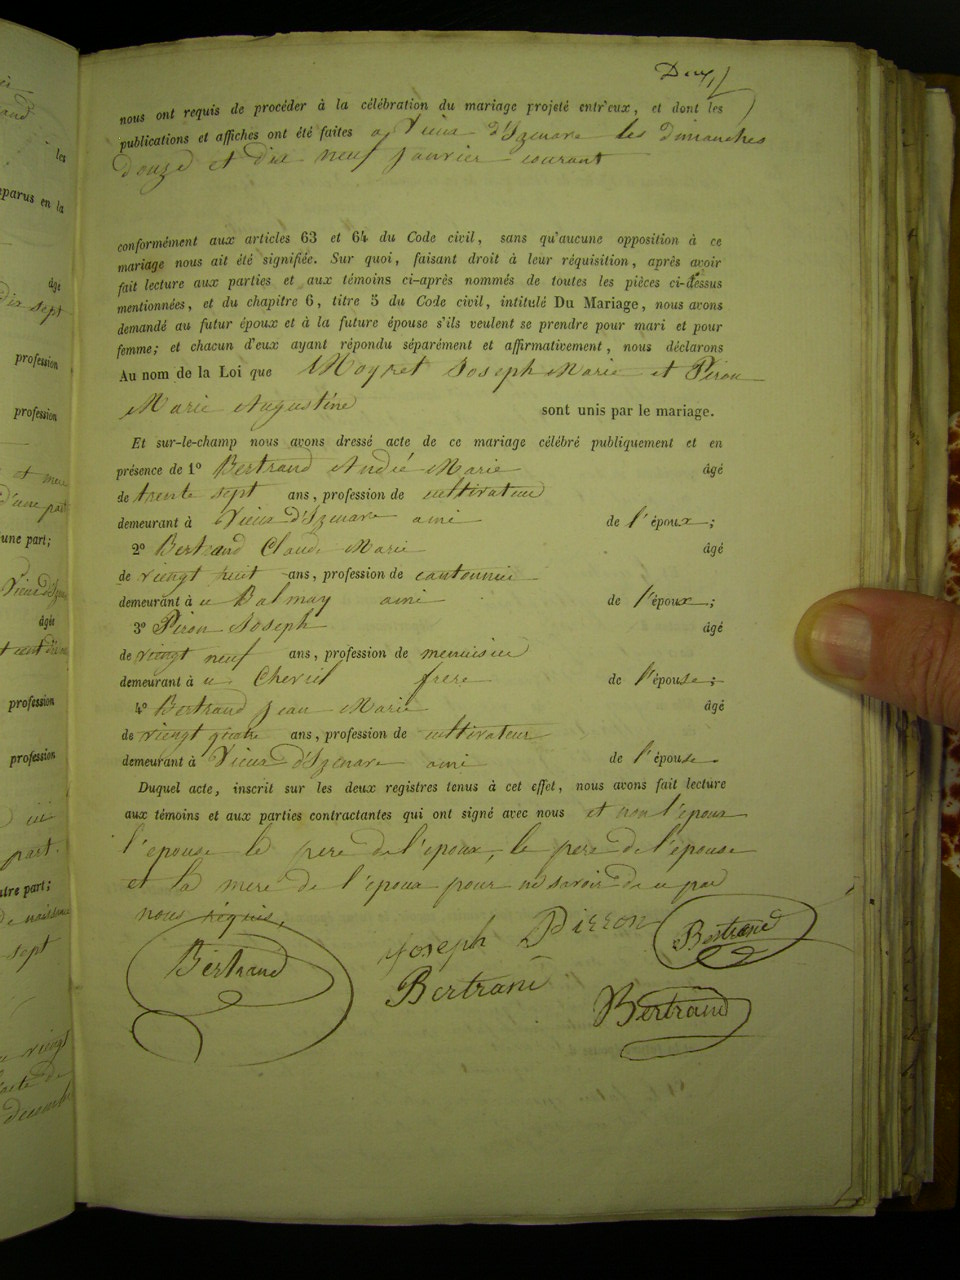 Deux
nous ont requis de procéder à la célébration du mariage projeté entr'eux, et dont les
publications et affiches ont été faites a Vieux d'Izenave les dimanches
douze et dix neuf janvier courant
conformément aux articles 63 et 64 du Code civil, sans qu'aucune opposition à ce
mariage nous ait été signifiée. Sur quoi, faisant droit à leur réquisition, après avoir
fait lecture aux parties et aux témoins ci-après nommés de toutes les pièces ci-dessus
mentionnées, et du chapitre 6, titre 5 du Code civil, intitulé Du Mariage, nous avons
demandé au futur époux et à la future épouse s'ils veulent se prendre pour mari et pour
femme; et chacun d'eux ayant répondu séparément et affirmativement, nous déclarons
Au nom de la Loi que Moyret Joseph Marie et Piron
Marie Augustine sont unis par le mariage.
Et sur-le-champ nous avons dressé acte de ce mariage célébré publiquement et en
présence de 1º Bertrand André Marie âgé
de trente sept ans, profession de cultivateur
demeurant à Vieux d'Izenave ami de l'époux;
2º Bertrand Claude Marie âgé
de viengt huit ans, profession de cantonnier
demeurant à a Balmay ami de l'époux;
3º Piron Joseph âgé
de viengt neuf ans, profession de menuisier
demeurant à a frere de l'épouse;
4º Bertrand Jean Marie âgé
de viengt quatre ans, profession de cultivateur
demeurant à Vieux d'Izenave ami de l'épouse.
Duquel acte, inscrit sur les deux registres tenus à cet effet, nous avons fait lecture
aux témoins et aux parties contractantes qui ont signé avec nous et non l'époux
l'épouse le pere de l'époux, le pere de l'épouse
et la mere de l'époux pour ne savoir de ce par
nous réquis,
Bertrand Joseph Pirron Bertrand
Bertrand Bertrand
les
comparus en la
âgé
dix sept
profession
profession
une part;
âgée
profession
profession
part.
autre part;
sept
viengt